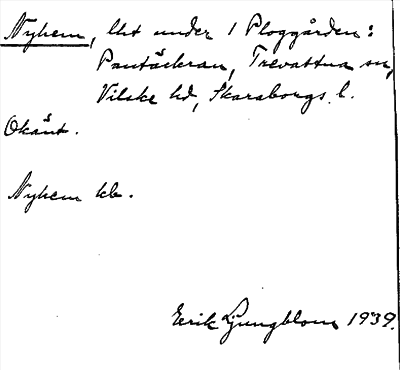 Nyhem, lht under 1 Ploggården:
Prästäckran, Trevattna sn,
Vilske hd, Skaraborgs l.
Okänt.
Nyhem kb.
Erik Ljungblom 1939.